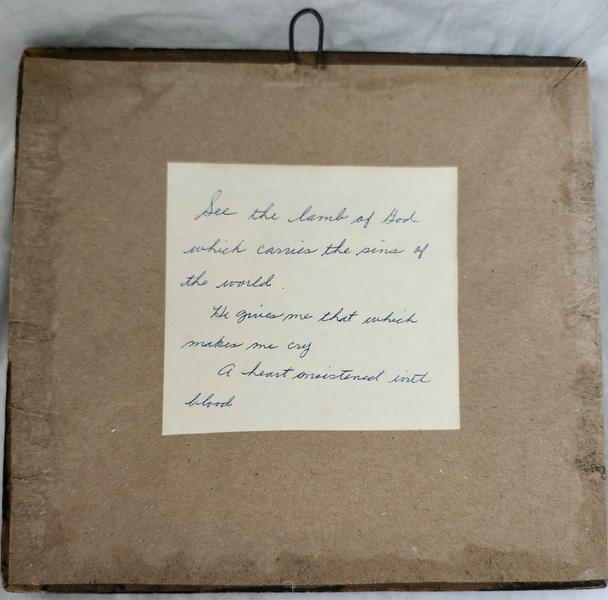 See the lamb of God
which carries the sins of
the world.
He gives me that which
makes me cry
A heart moistened with
blood